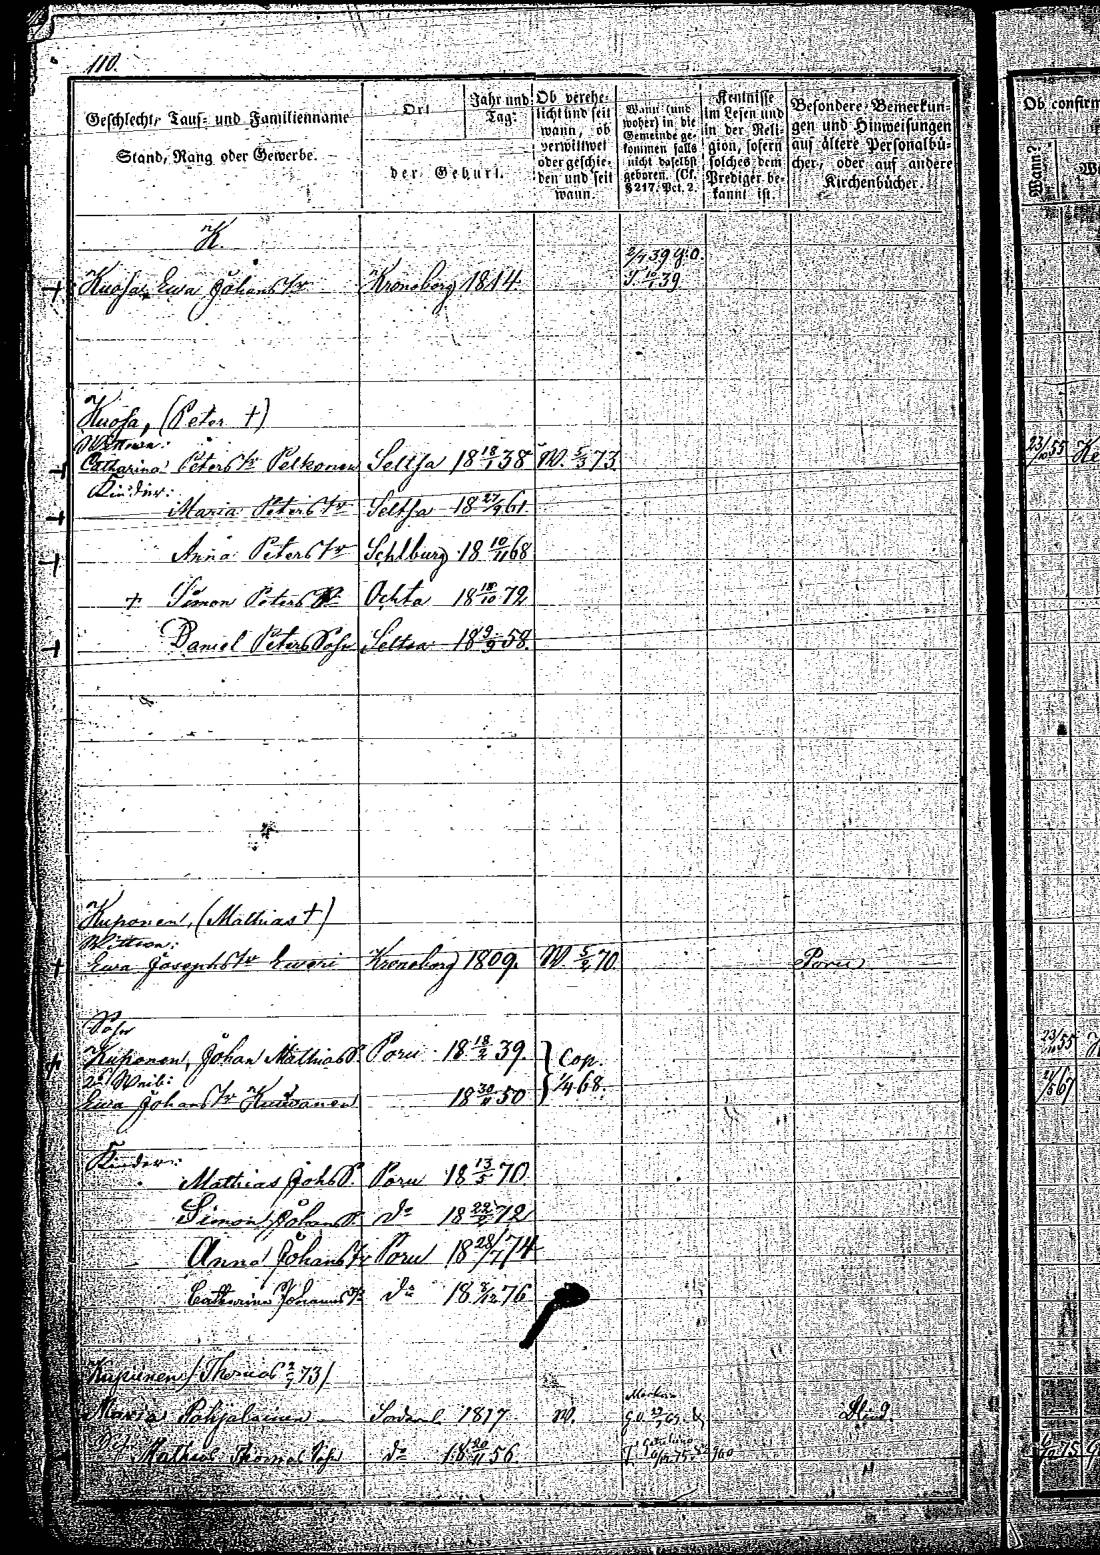 110.
Geschlecht, Tauf- und Familienname
Stand, Rang oder Gewerbe.
Ort
Jahr und Tag:
der Geburt.
Ob verehe-
licht und seit
wann, ob
verwittwet
oder geschie-
den und seit
wann.
Wann (und
woher) in die
Gemeinde ge-
kommen falls
nicht daselbst
geboren. (Cf.
§ 217. Pct. 2.
Kentnisse
im Lesen und
in der Reli-
gion, sofern
solches dem
Prediger be-
kannt ist.
Besondere Bemerkun-
gen und Hinweisungen
auf ältere Personalbü-
cher, oder auf andere
Kirchenbücher.
Ob confirm
Wann?
K.
2/1 39 g.o.
Kuosa, Ewa Johans Tr Kronoborg 1814. T. 10/1 39
Kuosa, (Peter †)
Wittwe:
Catharina Peters Tr Pelkonen Seltsa 18 18/1 38 W. 5/3 73. 23/10 55
Kinder:
Maria Peters Tr Seltsa 18 27/9 61
Anna Peters Tr Schlburg 18 10/11 68
+ Simon Peters Ochta 18 18/10 72
Daniel Peters Sohn Seltsa 18 9/9 58.
Kuponen, (Mathias †)
Wittwe:
Ewa Josephs Tr Eweri Kronoborg 1809. W. 5/2 70 Poru
Sohn
Kuponen, Johan Mathias S. Poru 18 18/2 39. Cop. 23/10 55
2s Weib: 1/4 68.
Ewa Johans Tr 18 30/11 50
Kinder:
Mathias Johs S. Poru 18 13/5 70
Simon Johans S. do 18 22/ 72
Anna Johans Tr Poru 18 28/7 74
Catharina Johans Tr do 18 /12 76
Thomas 73)
Maria Pohjalainen 1817 W. Blind
Mathias Thomas Sohn do 18 20/11 56.